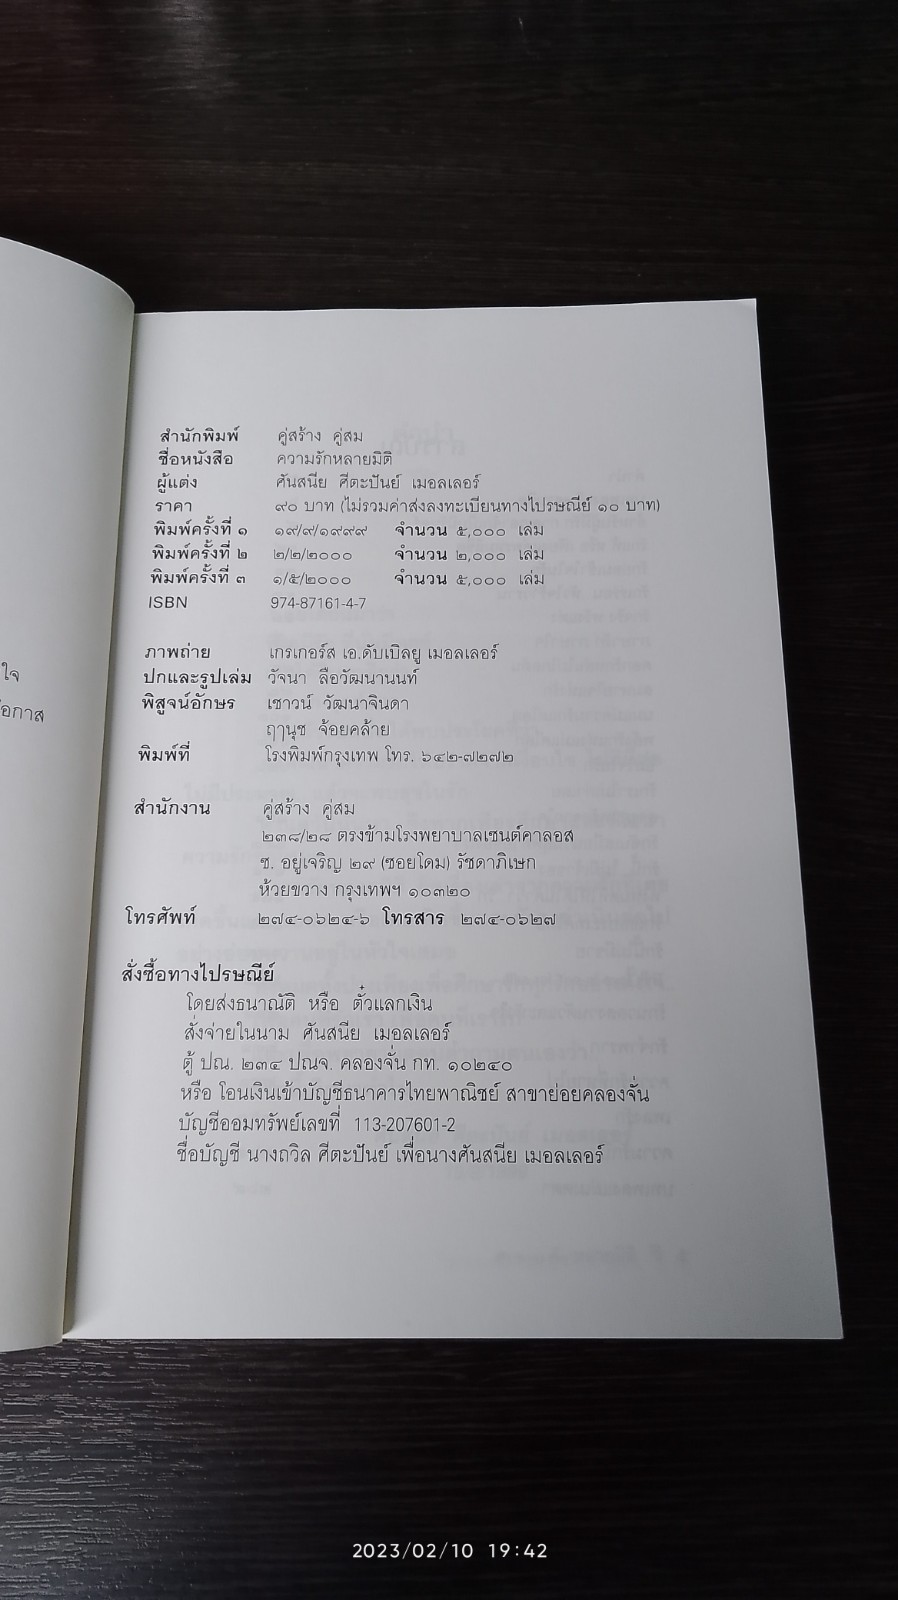 ใจ
โอกาส
สำนักพิมพ์ คู่สร้าง คู่สม
ชื่อหนังสือ ความรักหลายมิติ
ผู้แต่ง ศันสนีย ศีตะปันย์ เมอลเลอร์
ราคา ๙๐ บาท (ไม่รวมค่าส่งลงทะเบียนทางไปรษณีย์ ๑๐ บาท)
พิมพ์ครั้งที่ ๑ ๑๙/๙/๑๙๙๙ จำนวน ๕,๐๐๐ เล่ม
พิมพ์ครั้งที่ ๒ ๒/๒/๒๐๐๐ จำนวน ๒,๐๐๐ เล่ม
พิมพ์ครั้งที่ ๓ ๑/๕/๒๐๐๐ จำนวน ๕,๐๐๐ เล่ม
ISBN 974-87161-4-7
ภาพถ่าย เกรเกอร์ส เอ.ดับเบิลยู เมอลเลอร์
ปกและรูปเล่ม วัจนา ลือวัฒนานนท์
พิสูจน์อักษร เชาวน์ วัฒนาจินดา
ฤานุช จ้อยคล้าย
พิมพ์ที่ โรงพิมพ์กรุงเทพ โทร. ๖๔๒-๗๒๗๒
สำนักงาน คู่สร้าง คู่สม
๒๓๘/๒๘ ตรงข้ามโรงพยาบาลเซนต์คาลอส
ซ. อยู่เจริญ ๒๙ (ซอยโดม) รัชดาภิเษก
ห้วยขวาง กรุงเทพฯ ๑๐๓๒๐
โทรศัพท์ ๒๗๔-๐๖๒๔-๖ โทรสาร ๒๗๔-๐๖๒๗
สั่งซื้อทางไปรษณีย์
โดยส่งธนาณัติ หรือ ตั๋วแลกเงิน
สั่งจ่ายในนาม ศันสนีย เมอลเลอร์
ตู้ ปณ. ๒๓๔ ปณจ. คลองจั่น กท. ๑๐๒๔๐
หรือ โอนเงินเข้าบัญชีธนาคารไทยพาณิชย์ สาขาย่อยคลองจั่น
บัญชีออมทรัพย์เลขที่ 113-207601-2
ชื่อบัญชี นางถวิล ศีตะปันย์ เพื่อนางศันสนีย เมอลเลอร์
2023/02/10 19:42